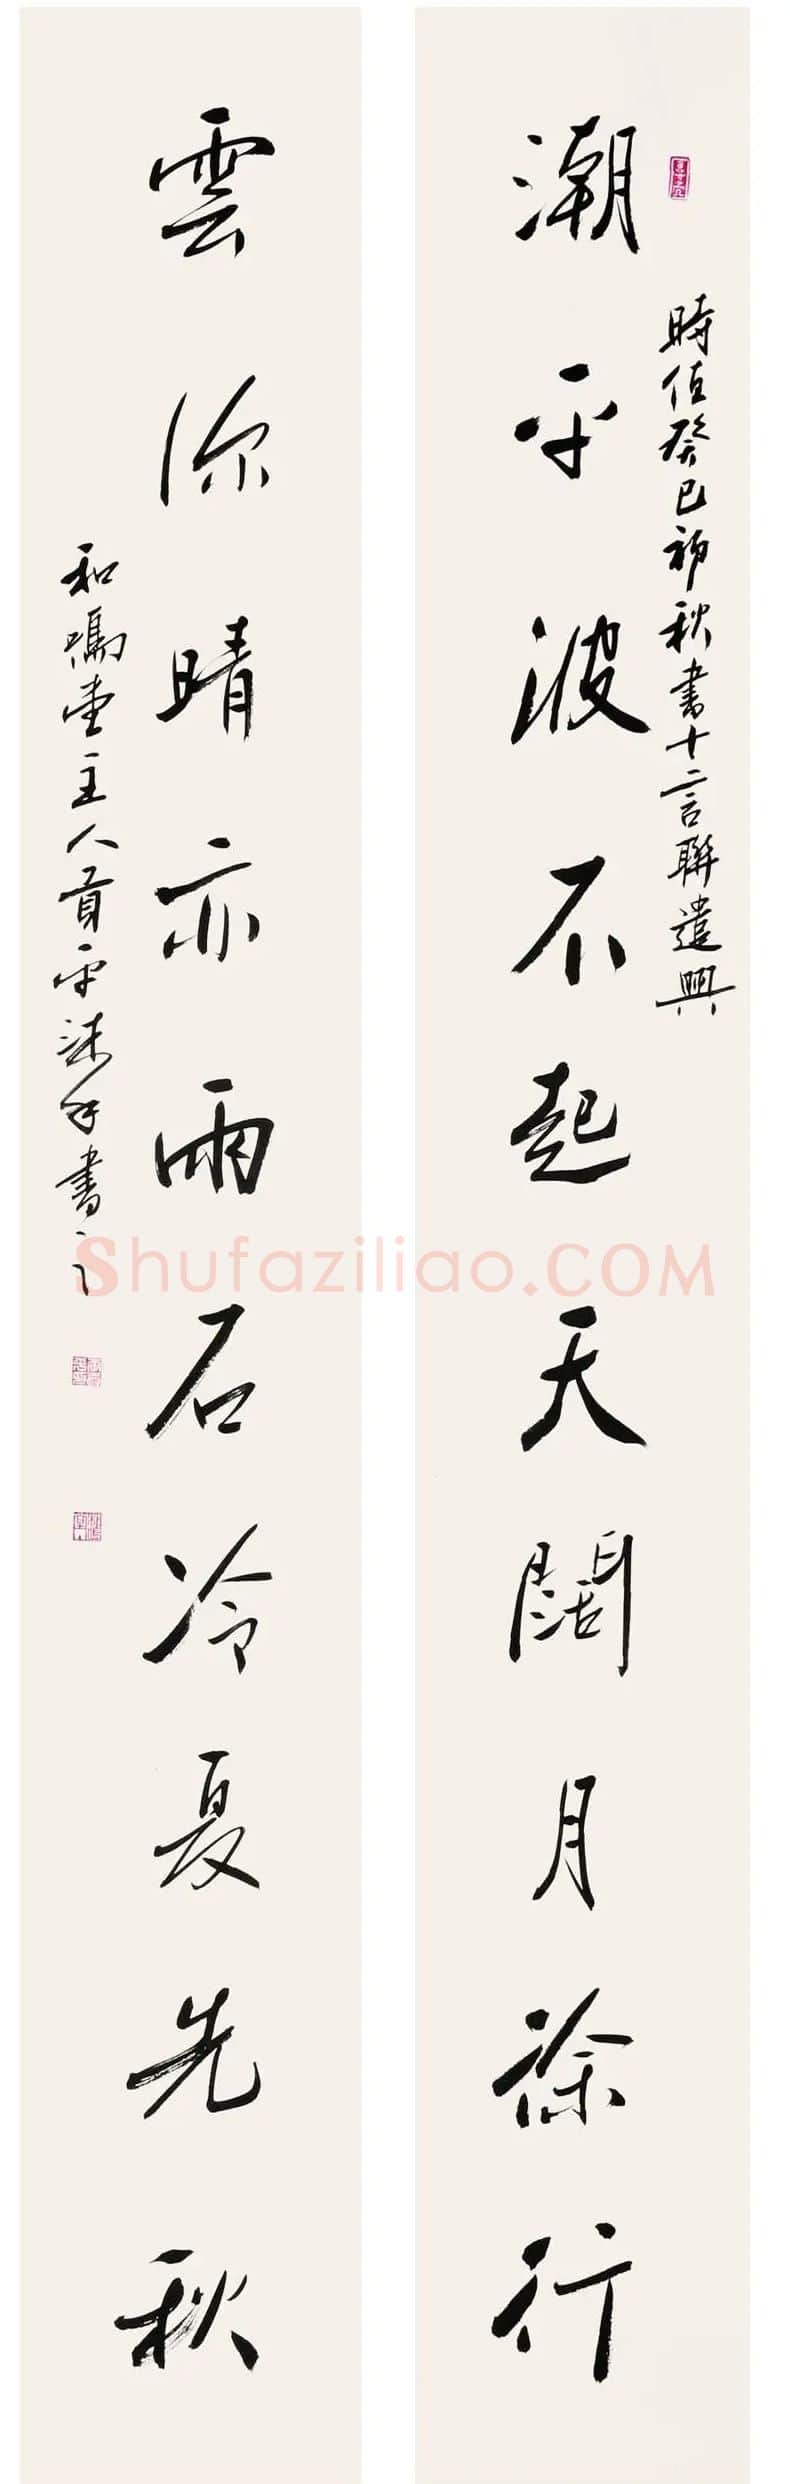 潮平波不起天闊月徐行
時值癸巳初秋書十言聯遣興
雲深晴亦雨石冷夏先秋
和鳴堂主人貢平
書之
Shufaziliao.COM